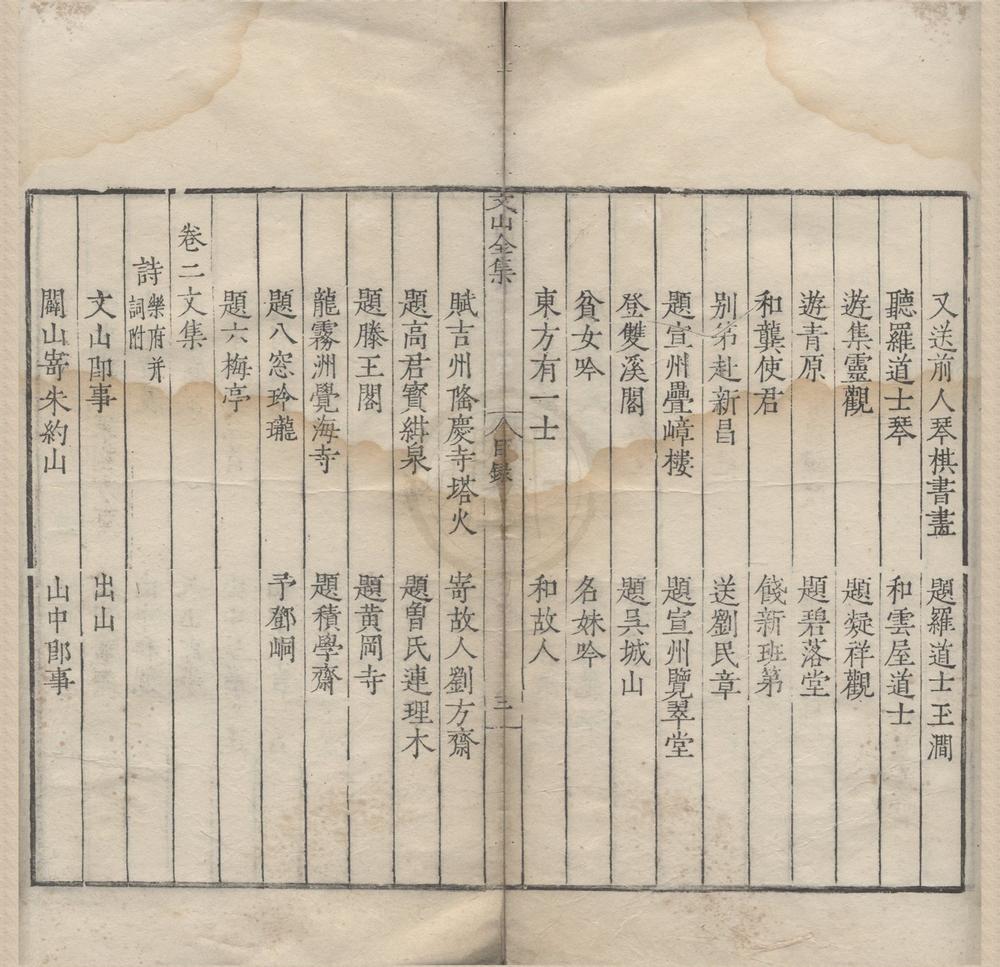 又送前人琴棋書畫　題羅道士玉澗
聽羅道士琴　和雲屋道士
遊集靈觀　題凝祥觀
遊青原　題碧落堂
和龔使君　餞新班第
别弟赴新昌　送劉民章
題宣州疊嶂樓　題宣州覽翠堂
登雙溪閣　題吳城山
貧女吟　名姝吟
東方有一士　和故人
文山全集　目錄　三
賦吉州隆慶寺塔火　寄故人劉方齋
題高君寳紺泉　題曾氏連理木
題滕王閣　題黃岡寺
龍霧洲覺海寺　題積學齋
題八窓玲瓏　予鄧峒
題六梅亭
卷二文集
詩樂府并詞附
文山即事　出山
闗山寄朱約山　山中即事